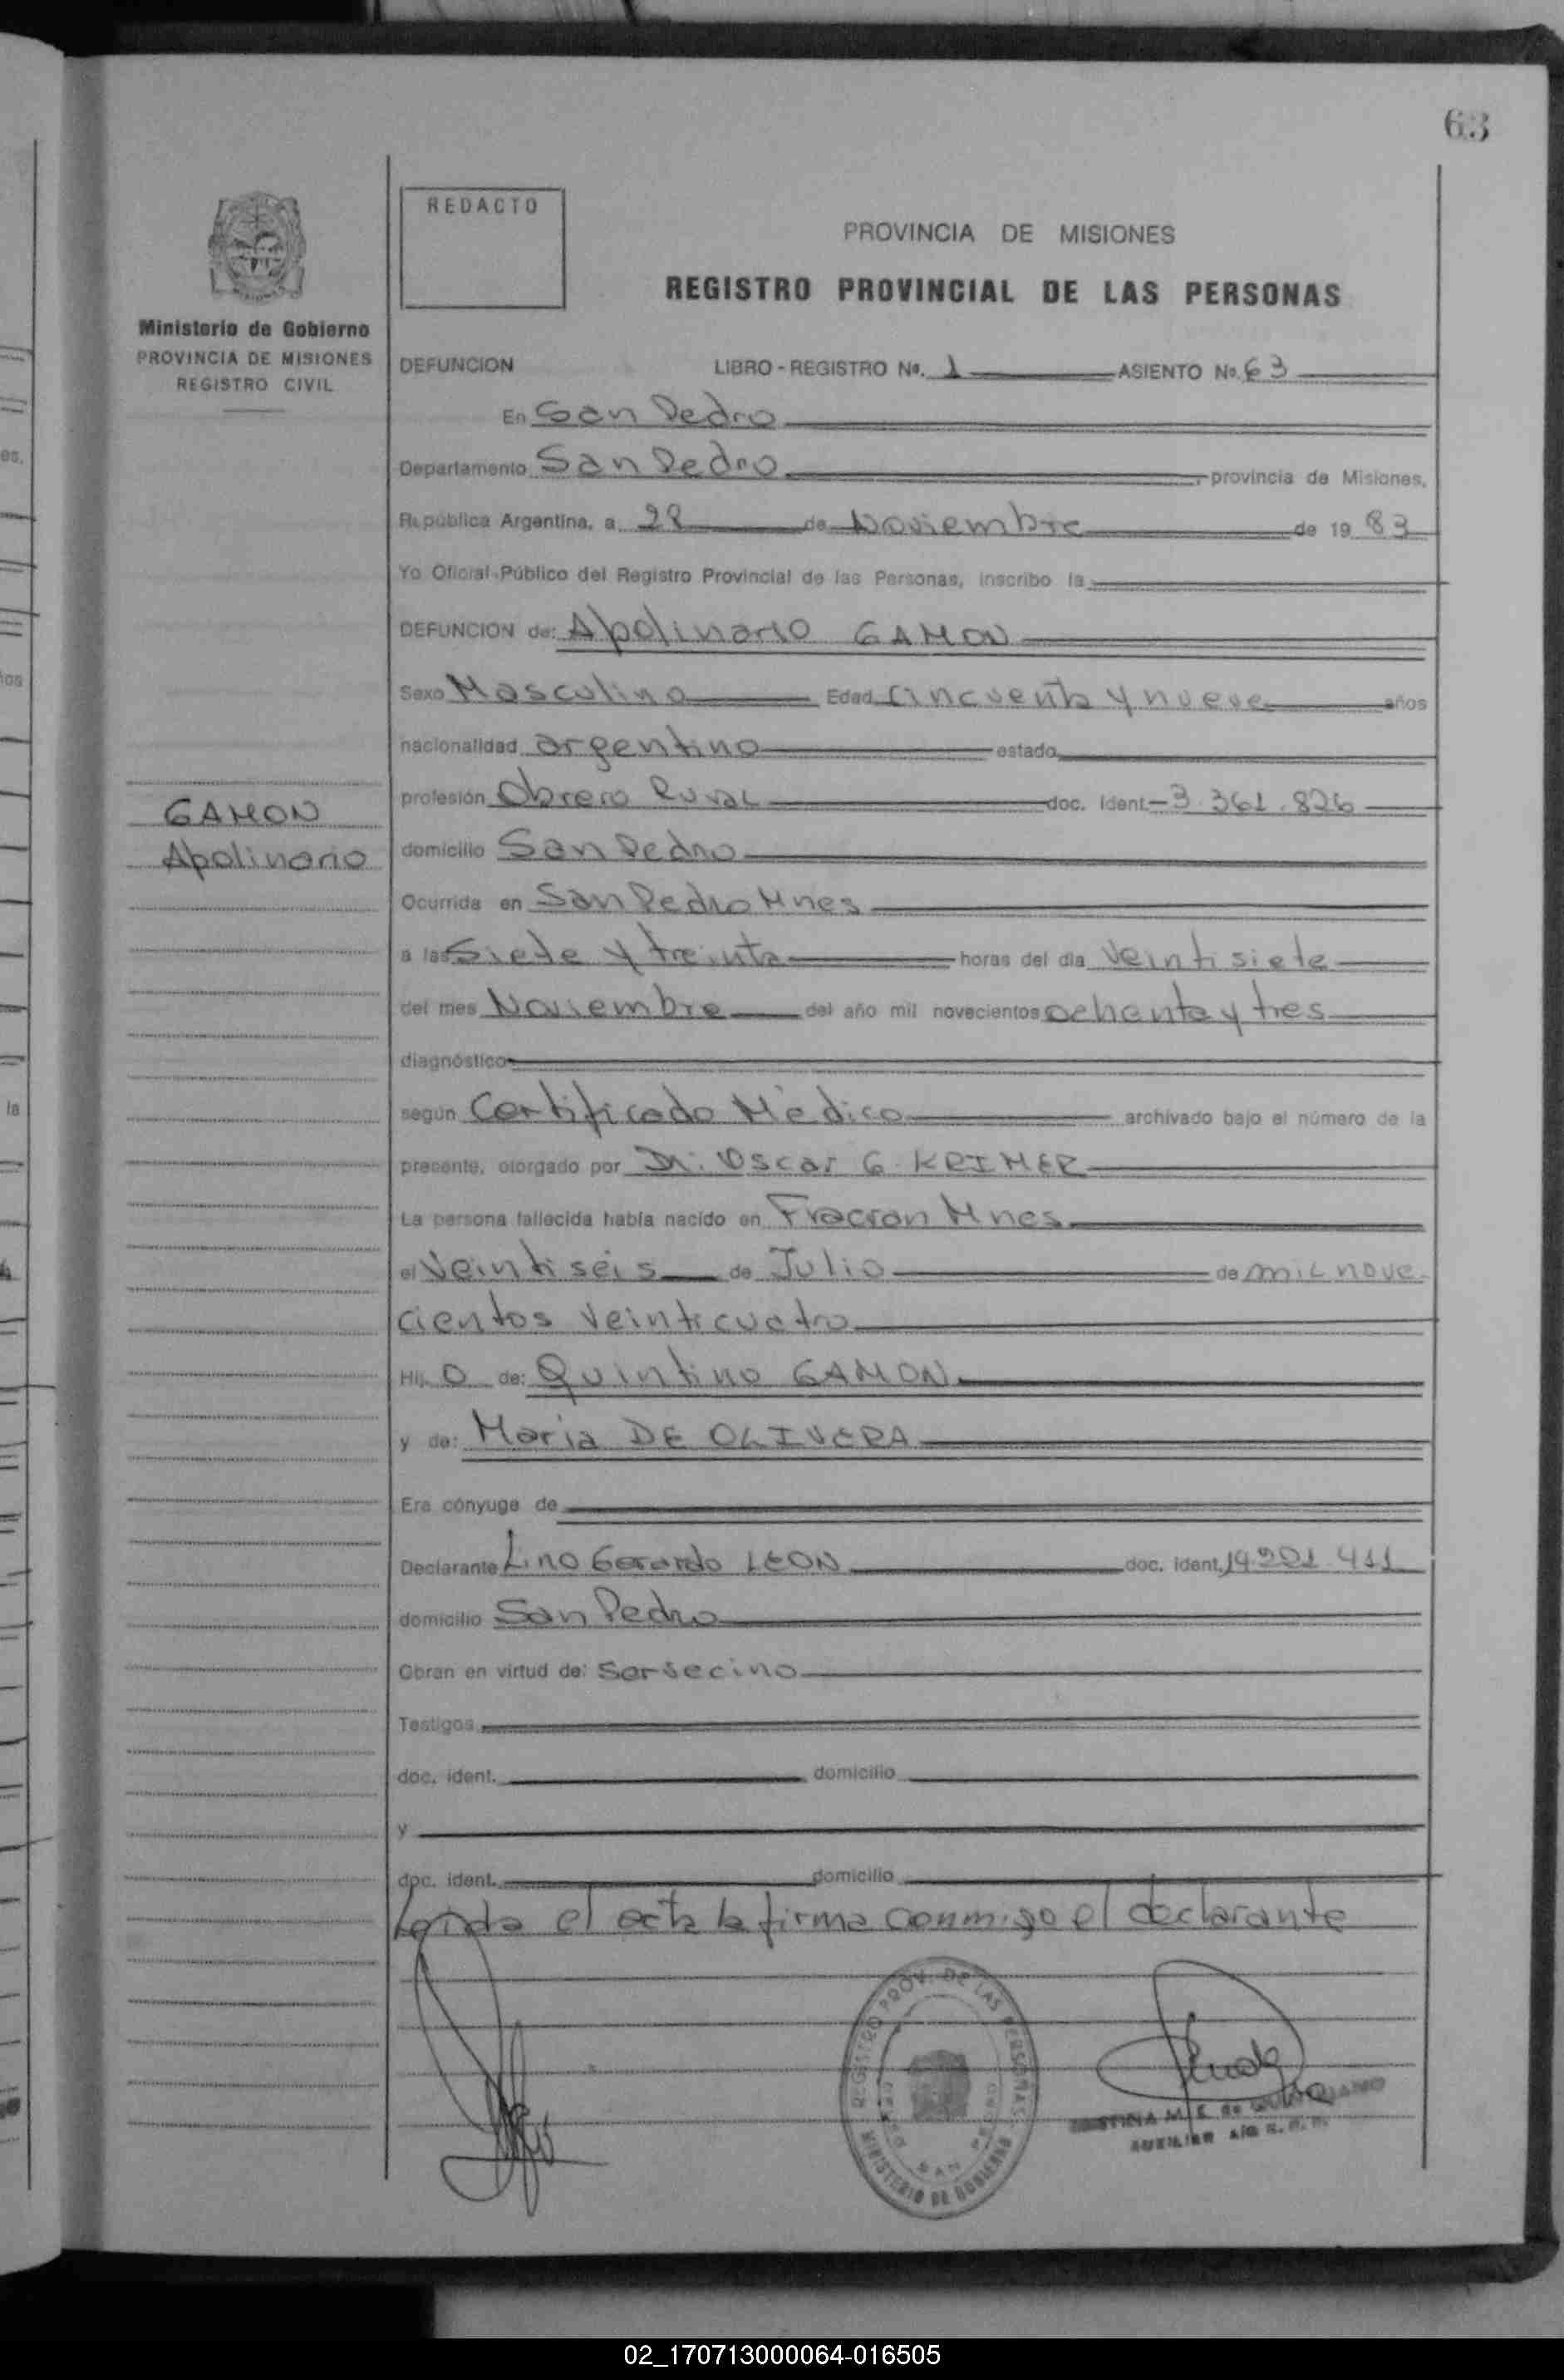 63
REDACTO
PROVINCIA DE MISIONES
REGISTRO PROVINCIAL DE LAS PERSONAS
Ministerio de Gobierno
PROVINCIA DE MISIONES
REGISTRO CIVIL
DEFUNCION LIBRO - REGISTRO No. 1 ASIENTO No. 63
En San Pedro
Departamento San Pedro, provincia de Misiones,
República Argentina, a 28 de Noviembre de 19 83
Yo Oficial Público del Registro Provincial de las Personas, inscribo la
DEFUNCION de: Apolinario GAMON
Sexo Masculino Edad cincuenta y nueve años
nacionalidad argentino estado
profesión Obrero Rural doc. ident. 3.361.826
GAMON
Apolinario
domicilio San Pedro
Ocurrida en San Pedro Mnes
a las Siete y treinta horas del día Veintisiete
del mes Noviembre del año mil novecientos ochenta y tres
diagnóstico
según Certificado Médico archivado bajo el número de la
presente, otorgado por Dr. Oscar G. KRIMER
La persona fallecida había nacido en Fracran Mnes
el Veintiseis de Julio de mil nove
cientos veinticuatro
Hij o de: Quintino GAMON
y de: Maria DE OLIVERA
Era cónyuge de
Declarante Lino Gerardo LEON doc. ident. 14.901.411
domicilio San Pedro
Obran en virtud de: Ser vecino
Testigos
doc. ident. domicilio
y
doc. ident. domicilio
Leida el acta la firma conmigo el declarante
REGISTRO PROV. DE LAS PERSONAS
MINISTERIO DE GOBIERNO
SAN PEDRO
M. E. de
AUXILIAR
02_170713000064-016505